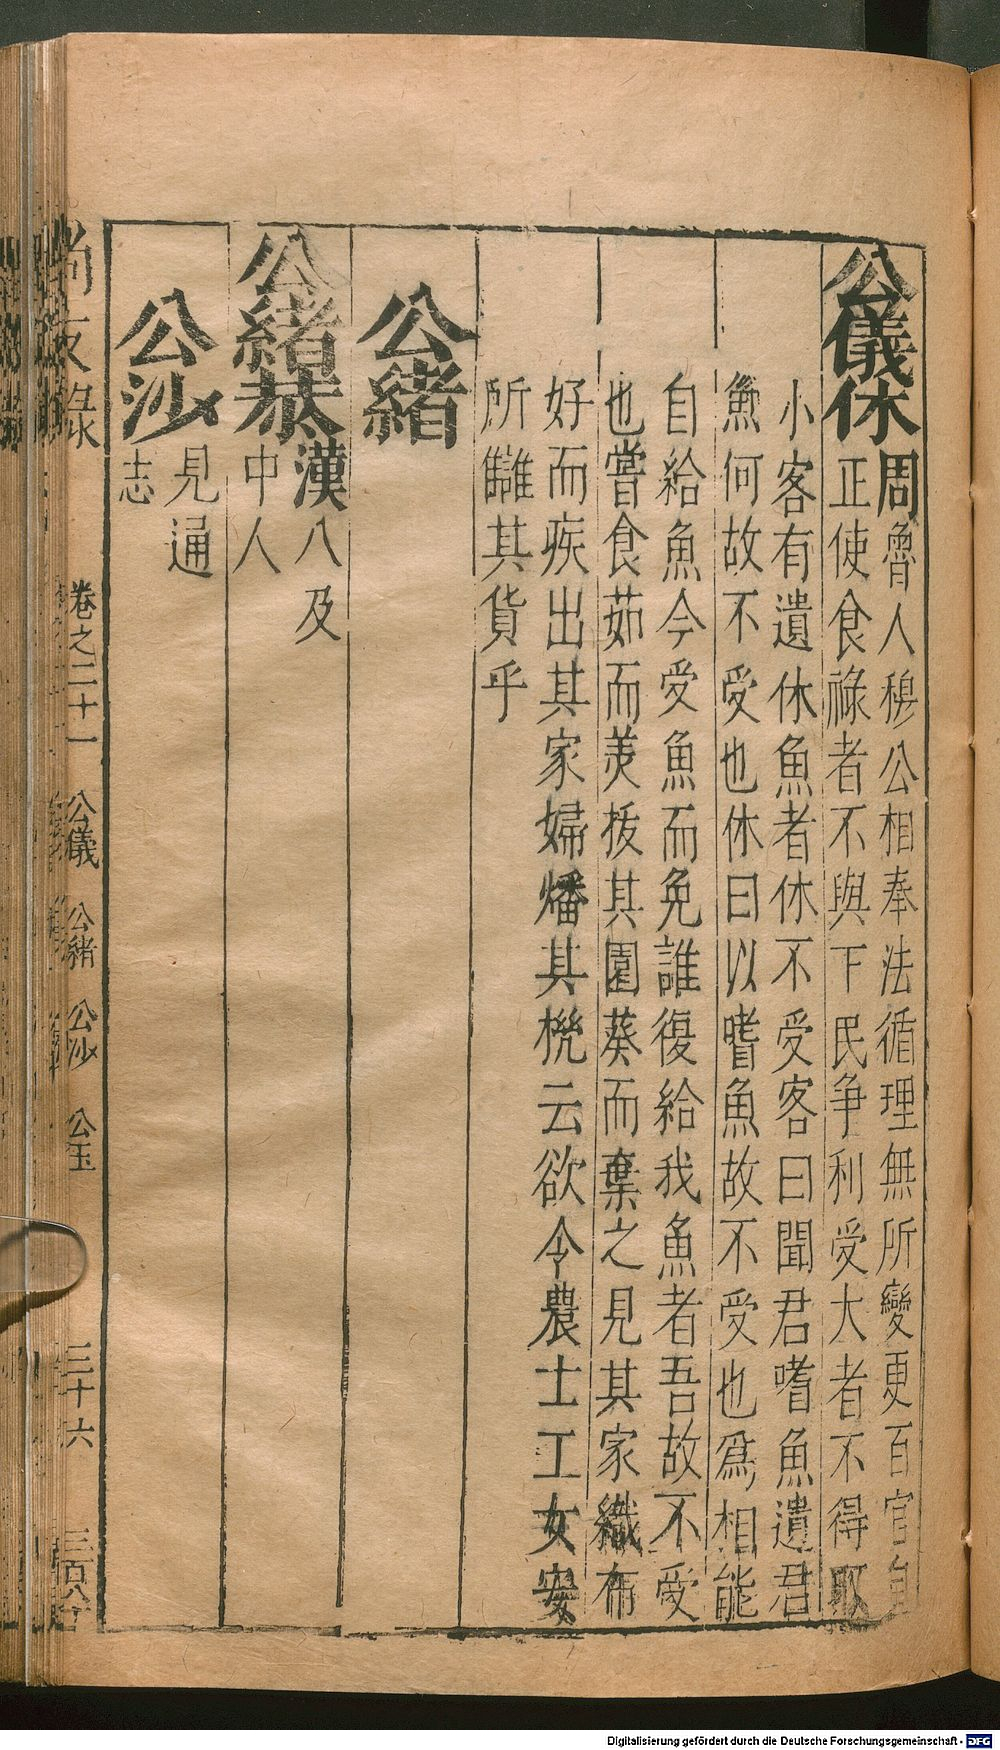 公儀休
周魯人穆公相奉法循理無所變更百官自
正使食祿者不與下民爭利受大者不得取
小客有遺休魚者休不受客曰聞君嗜魚遺君
魚何故不受也休曰以嗜魚故不受也爲相能
自給魚今受魚而免誰復給我魚者吾故不受
也嘗食茹而美拔其園葵而棄之見其家織布
好而疾出其家婦燔其機云欲令農士工女安
所讎其貨乎
公緒
公緒恭
漢八及
中人
公沙
見通
志
尚友錄
卷之二十一
公儀
公緒
公沙
公玉
三十六
三百八
Digitalisierung gefördert durch die Deutsche Forschungsgemeinschaft - DFG